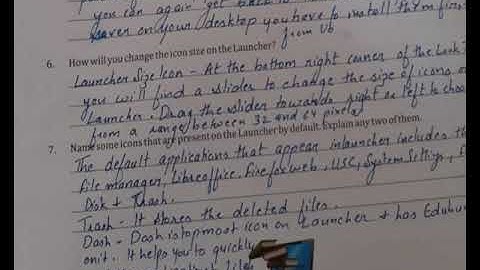 you can again get back to
saver on your desktop you have to install them from
from Ub
6. How will you change the icon size on the Launcher?
Launcher Size Icon - At the bottom right corner of the Look
you will find a slider to change the size of icons o
Launcher. Drag the slider towards right or left to choo
from a range between 32 and 64 pixels
7. Name some icons that are present on the Launcher by default. Explain any two of them.
The default applications that appear in launcher includes th
File manager, Libreoffice, Firefox web, USC, System Settings,
Disk & Trash.
Trash - It stores the deleted files.
Dash - Dash is topmost icon on Launcher & has Edubun
on it. It helps you to quickly
files